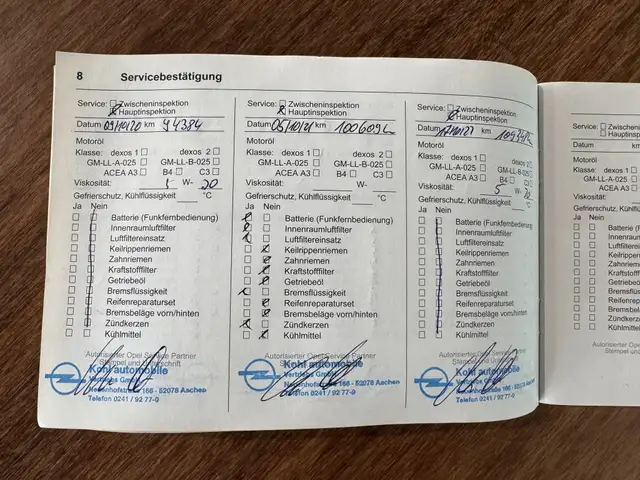 8 Servicebestätigung
Service: Zwischeninspektion
Hauptinspektion
Datum 09/10/20 km 94384
Motoröl
Klasse: dexos 1 dexos 2
GM-LL-A-025 GM-LL-B-025
ACEA A3 B4 C3
Viskosität: W- 20
Gefrierschutz, Kühlflüssigkeit °C
Ja Nein
Batterie (Funkfernbedienung)
Innenraumluftfilter
Luftfiltereinsatz
Keilrippenriemen
Zahnriemen
Kraftstofffilter
Getriebeöl
Bremsflüssigkeit
Reifenreparaturset
Bremsbeläge vorn/hinten
Zündkerzen
Kühlmittel
Autorisierter Opel Service Partner
Stempel und Unterschrift
Kohl automobile
Vertriebs GmbH
52078 Aachen
Telefon 0241 / 92 77-0
Service: Zwischeninspektion
Hauptinspektion
Datum 05/10/21 km 100609
Motoröl
Klasse: dexos 1 dexos 2
GM-LL-A-025 GM-LL-B-025
ACEA A3 B4 C3
Viskosität: W-
Gefrierschutz, Kühlflüssigkeit °C
Ja Nein
Batterie (Funkfernbedienung)
Innenraumluftfilter
Luftfiltereinsatz
Keilrippenriemen
Zahnriemen
Kraftstofffilter
Getriebeöl
Bremsflüssigkeit
Reifenreparaturset
Bremsbeläge vorn/hinten
Zündkerzen
Kühlmittel
Autorisierter Opel Service Partner
Stempel und Unterschrift
Kohl automobile
Vertriebs GmbH
166 - 52078 Aachen
Telefon 0241 / 92 77-0
Service: Zwischeninspektion
Hauptinspektion
Datum km
Motoröl
Klasse: dexos 1 dexos 2
GM-LL-A-025 GM-LL-B-025
ACEA A3 B4 C3
Viskosität: 5 W-
Gefrierschutz, Kühlflüssigkeit °C
Ja Nein
Batterie (Funkfernbedienung)
Innenraumluftfilter
Luftfiltereinsatz
Keilrippenriemen
Zahnriemen
Kraftstofffilter
Getriebeöl
Bremsflüssigkeit
Reifenreparaturset
Bremsbeläge vorn/hinten
Zündkerzen
Kühlmittel
Autorisierter Opel Service Partner
Stempel und
Kohl automobile
Vertriebs GmbH
166 - 52078 Aachen
Telefon 0241 / 92 77-0
Service:
Datum km
Motoröl
Klasse:
GM-LL-A-025
ACEA A3
Viskosität:
Gefrierschutz, Kühl
Ja Nein
Batterie
Innenraum
Luftfilter
Keilrippen
Zahnriemen
Kraftstoff
Getriebeöl
Bremsflüssig
Reifenrep
Bremsbel
Zündkerz
Kühlmittel
Autorisierter